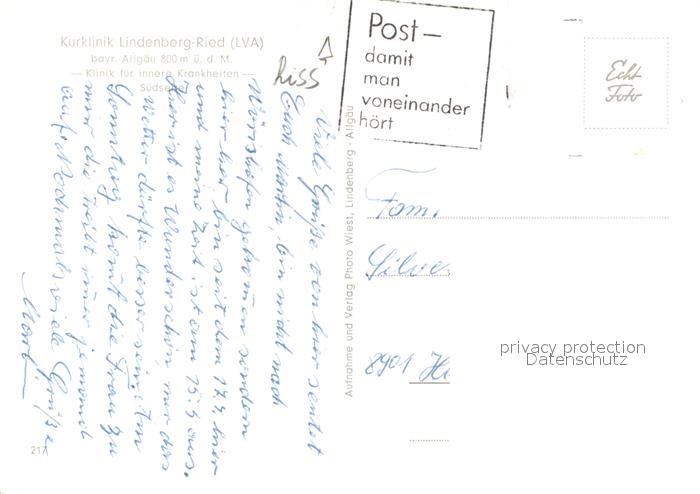 Kurklinik Lindenberg-Ried (LVA)
bayr. Allgäu 800 m ü. d. M.
— Klinik für innere Krankheiten —
Südseite
hiss
Post—
damit
man
voneinander
hört
Echt
Foto
Viele Grüße von hier sendet
Euch Martin, bin nicht nach
Wörishofen gekommen sondern
hier her bin seit dem 17.4. hier
und meine Zeit ist am 15.5 aus.
Hier ist es Wunderschön nur das
Wetter dürfte besser sein. Am
Sonntag kommt die Frau zu
mir die
auf. Nochmals viele Grüße
Aufnahme und Verlag Photo Wiest, Lindenberg - Allgäu
Fam.
Silve
8901 Hi
privacy protection
Datenschutz
217